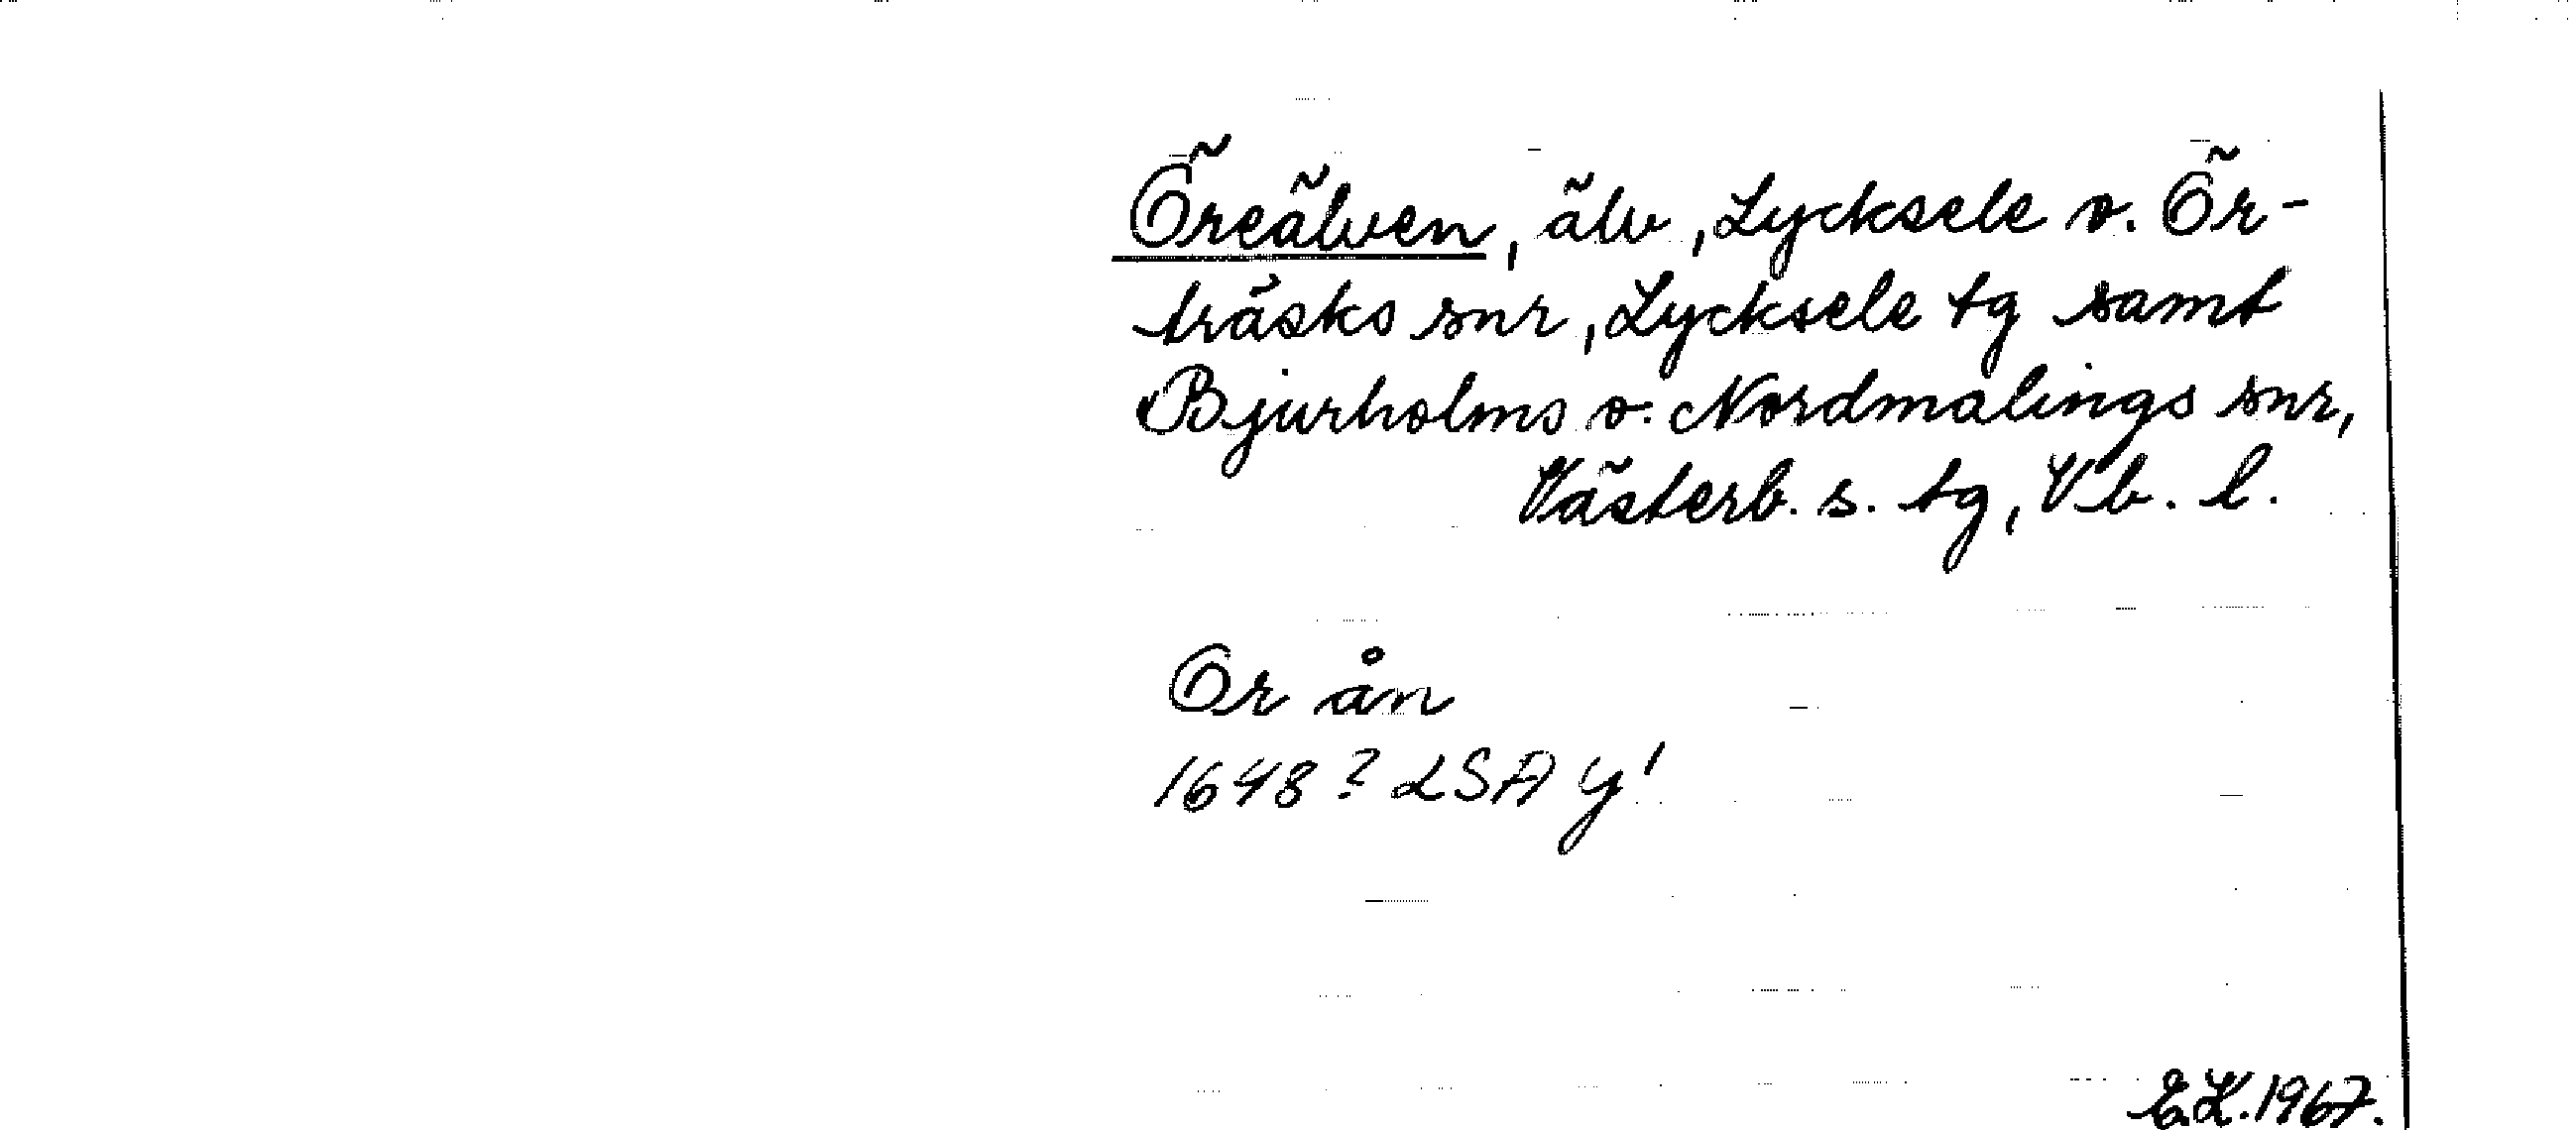 Öreälven, älv, Lycksele o. Ör-
träsks snr, Lycksele tg samt
Bjurholms o. Nordmalings snr,
Västerb. s. tg, Vb. l.
Or ån
1648? LSA y'
E.K. 1967.